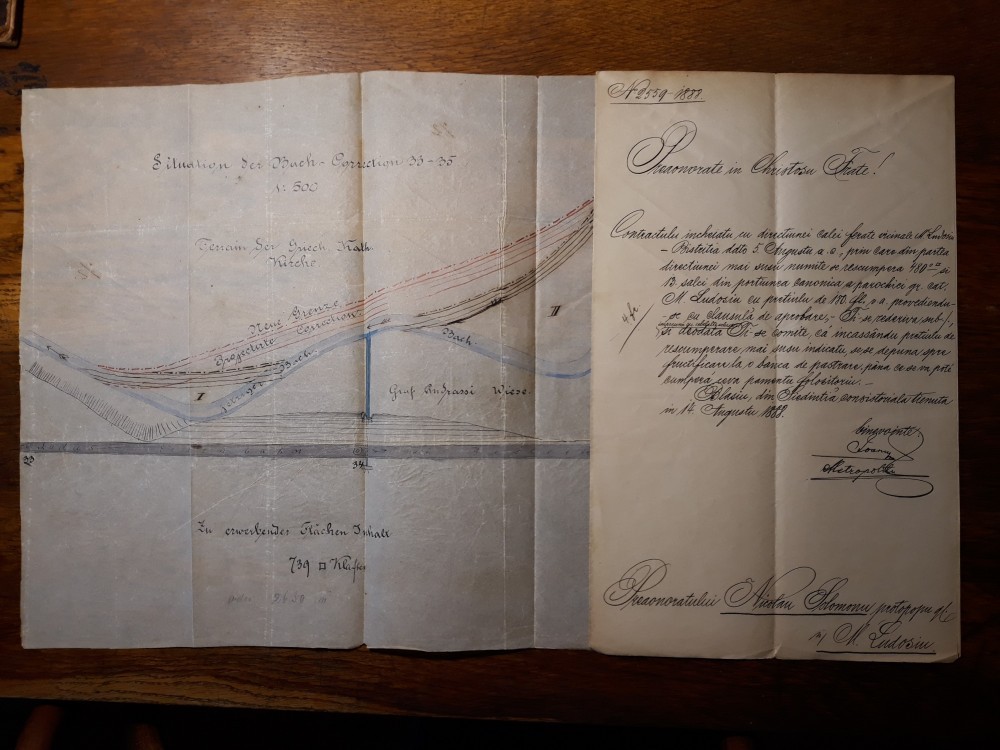 Situation der Bach-Correction 33-35
1:500
Terrain der Griech. Kath.
Kirche.
Neue Grenze
Projectirte Correction
jetziger Bach.
Bach.
I
II
Graf Andrassi Wiese.
33
34
Zu erwerbender Flächen Inhalt
739 □ Klafter
N 2559-1888
Preaonorate in Christosu Frate!
Contractulu incheiatu cu directiunea calei ferate vicinale M. Ludosiu
- Bistritia ddto 5 Augustu a. c., prin care din partea
directiunei mai susu numite se rescumpera 480 si
salei, din portiunea canonica a parochiei gr. cat.
M. Ludosiu cu pretiulu de 170 fl. v. a. provediendu-
se cu clausul'a de aprobare, - Ti-se rederiva sub /,
si deodata Ti-se comite, că incassându pretiulu de
rescumperare, mai susu indicatu, se-se depuna spre
fructificare la o banca de pastrare, pana ce se va poté
cumpera ceva pamentu folositoriu. -
Blasiu, din Siedinti'a consistoriala tienuta
in 14. Augustu 1888.
binevointe
Ioanu
Metropolitu
Preaonoratului Nicolau Solomonu protopopu gr. c.
in M. Ludosiu